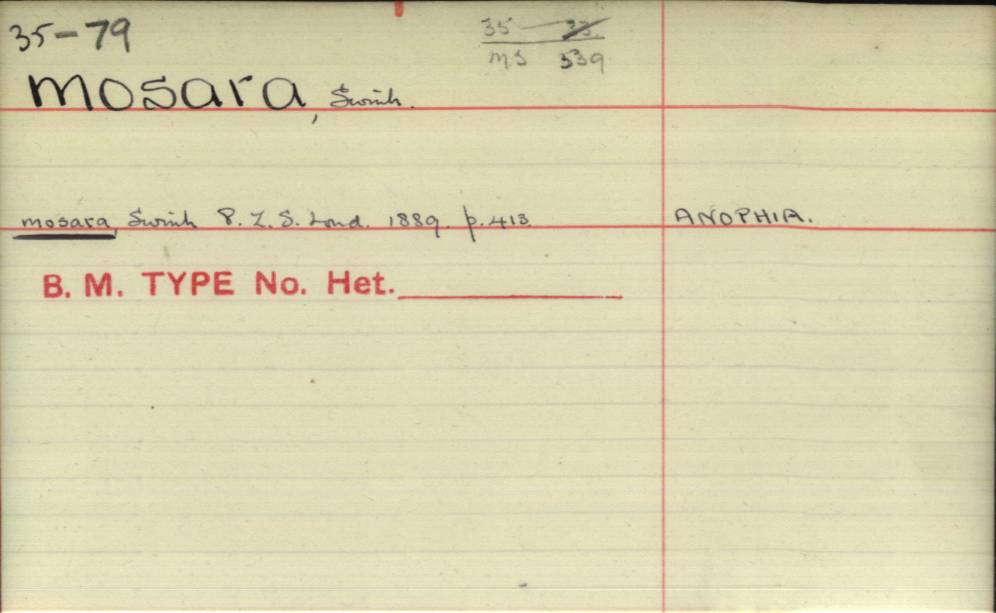 35-79
35 — 33.
MS 539
mosara, Swinh.
mosara, Swinh P. Z. S. Lond. 1889. p. 413. ANOPHIA.
B. M. TYPE No. Het.